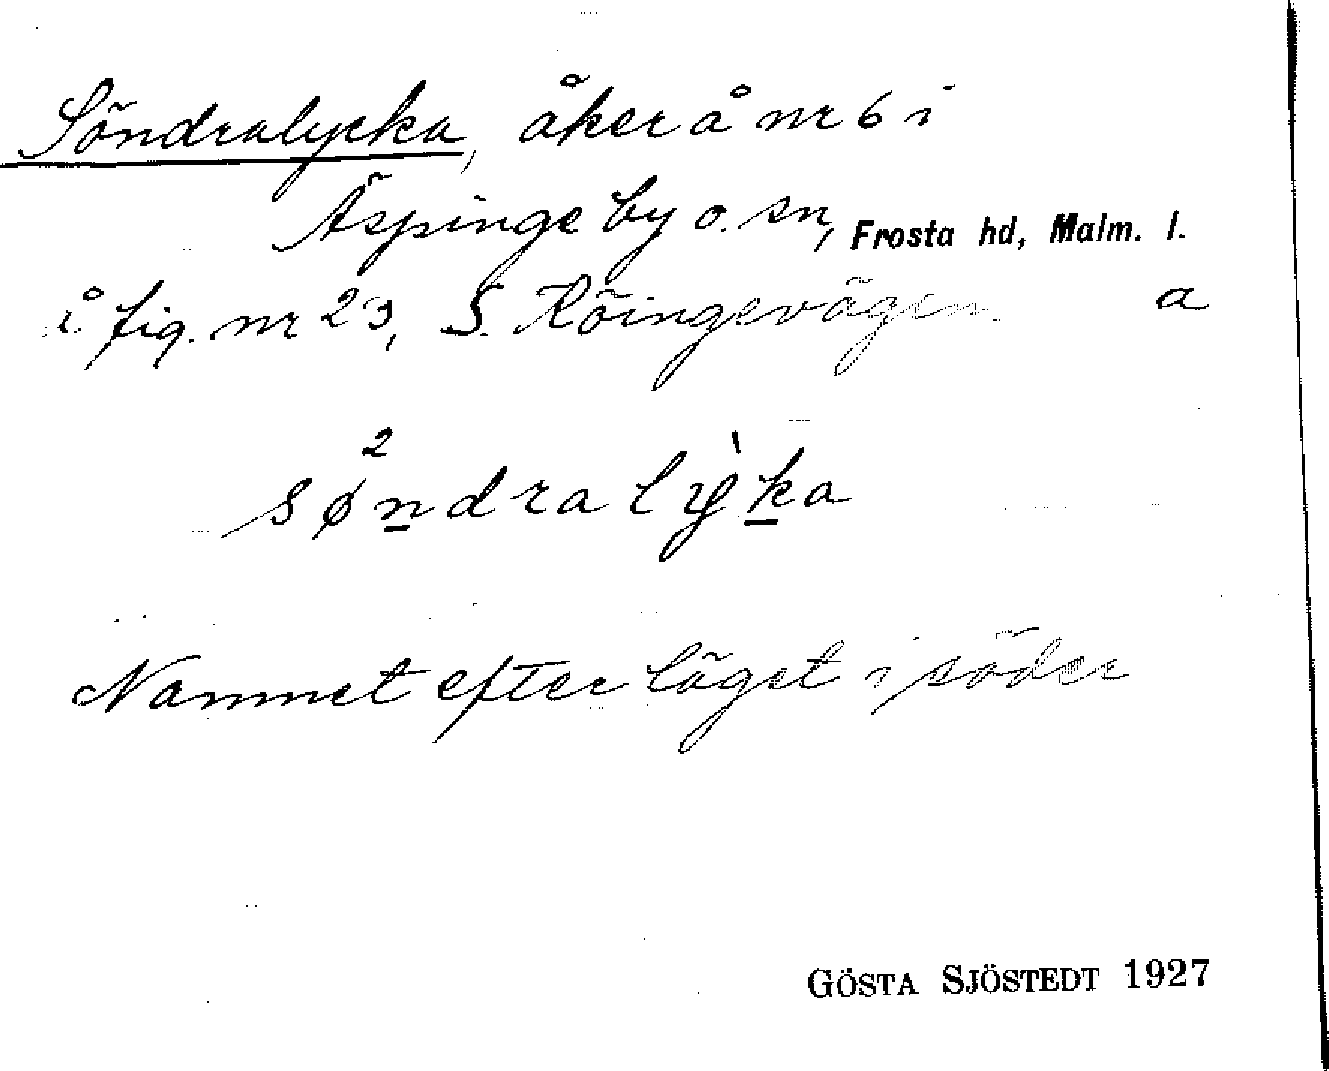 Söndralycka, åker å nr 6 i
Äspinge by o. sn, Frosta hd, Malm. l.
å fig. nr 23, S. Röingevägen a
2
søndralỳka
Namnet efter läget i söder
GÖSTA SJÖSTEDT 1927